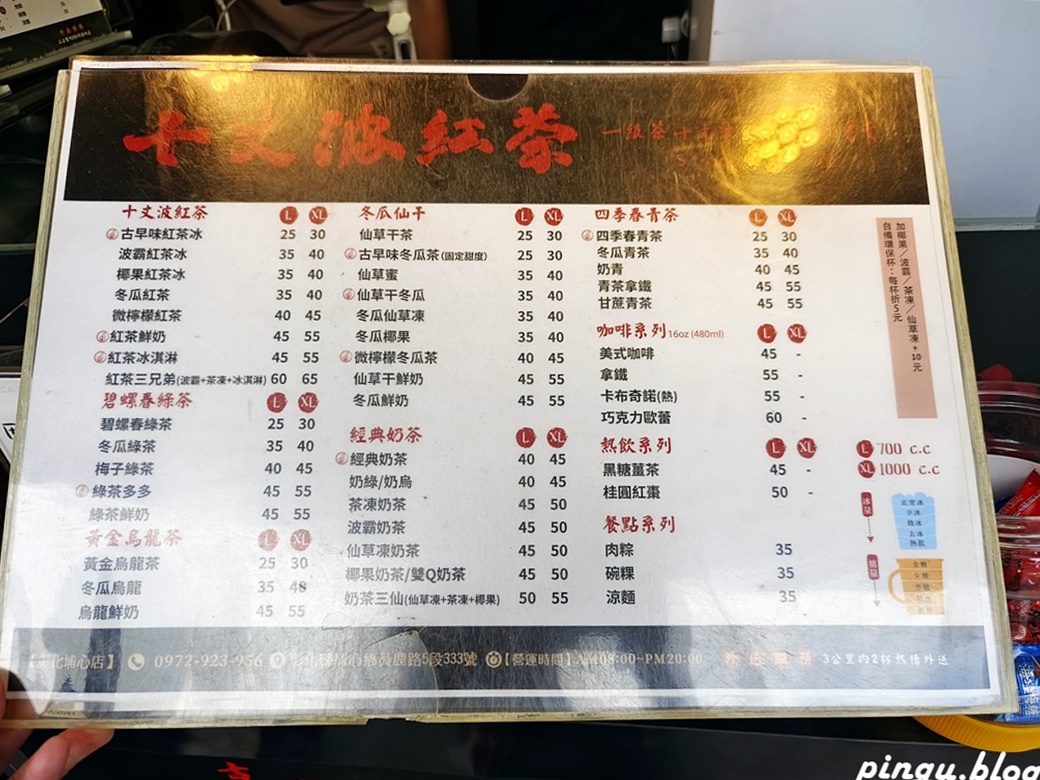 十丈波紅茶
一級茶十
十丈波紅茶 L XL
古早味紅茶冰 25 30
波霸紅茶冰 35 40
椰果紅茶冰 35 40
冬瓜紅茶 35 40
微檸檬紅茶 40 45
紅茶鮮奶 45 55
紅茶冰淇淋 45 55
紅茶三兄弟(波霸+茶凍+冰淇淋) 60 65
碧螺春綠茶 L XL
碧螺春綠茶 25 30
冬瓜綠茶 35 40
梅子綠茶 40 45
綠茶多多 45 55
綠茶鮮奶 45 55
黃金烏龍茶 L XL
黃金烏龍茶 25 30
冬瓜烏龍 35 40
烏龍鮮奶 45 55
冬瓜仙干 L XL
仙草干茶 25 30
古早味冬瓜茶(固定甜度) 25 30
仙草蜜 35 40
仙草干冬瓜 35 40
冬瓜仙草凍 35 40
冬瓜椰果 35 40
微檸檬冬瓜茶 40 45
仙草干鮮奶 45 55
冬瓜鮮奶 45 55
經典奶茶 L XL
經典奶茶 40 45
奶綠/奶烏 40 45
茶凍奶茶 45 50
波霸奶茶 45 50
仙草凍奶茶 45 50
椰果奶茶/雙Q奶茶 45 50
奶茶三仙(仙草凍+茶凍+椰果) 50 55
四季春青茶 L XL
四季春青茶 25 30
冬瓜青茶 35 40
奶青 40 45
青茶拿鐵 45 55
甘蔗青茶 45 55
咖啡系列 16oz (480ml) L XL
美式咖啡 45 -
拿鐵 55 -
卡布奇諾(熱) 55 -
巧克力歐蕾 60 -
熱飲系列 L XL
黑糖薑茶 45 -
桂圓紅棗 50 -
餐點系列
肉粽 35
碗粿 35
涼麵 35
加椰果／波霸／茶凍／仙草凍+10元
自備環保杯：每杯折5元
L 700 c.c
XL 1000 c.c
冰量
正常冰
少冰
微冰
去冰
熱飲
糖量
全糖
少糖
半糖
北埔心店】 0972-923-956 路5段333號 【營運時間】AM08:00~PM20:00 外送服務 3公里內2杯熱情外送
pingu.blog